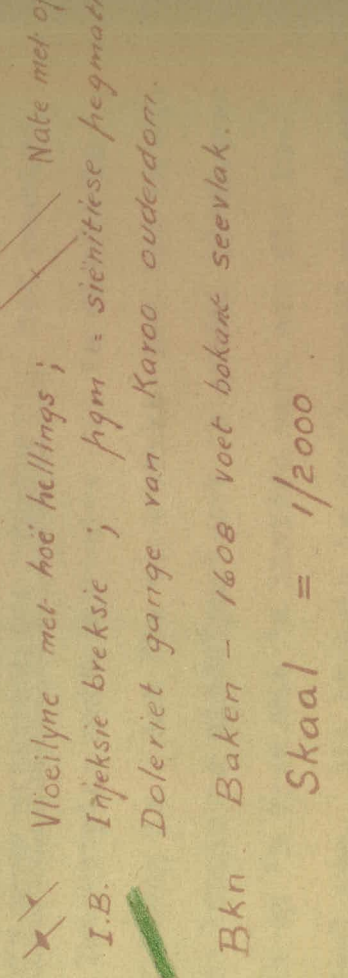 Vloeilyne met hoë hellings; Nate met
I.B. Injeksie breksie; pgm = siënitiese
Doleriet gange van Karoo ouderdom.
Bkn Baken - 1608 voet bokant seevlak.
Skaal = 1/2000.